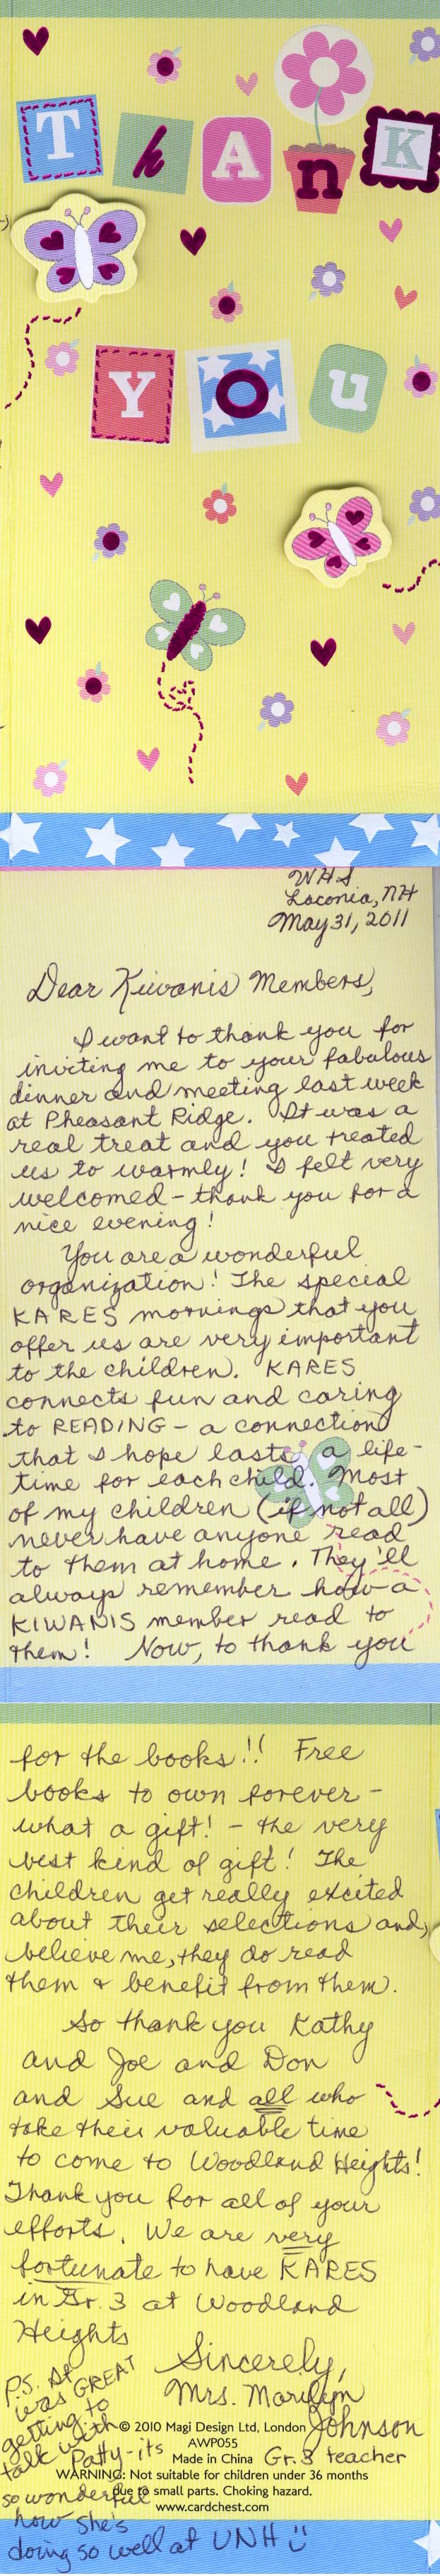 Thank
You
WHS
Laconia, NH
May 31, 2011
Dear Kiwanis Members,
I want to thank you for
inviting me to your fabulous
dinner and meeting last week
at Pheasant Ridge. It was a
real treat and you treated
us to warmly! I felt very
welcomed - thank you for a
nice evening!
You are a wonderful
organization! The special
KARES mornings that you
offer us are very important
to the children. KARES
connects fun and caring
to READING - a connection
that I hope lasts a life-
time for each child. Most
of my children (if not all)
never have anyone read
to them at home. They'll
always remember how a
KIWANIS member read to
them! Now, to thank you
for the books!! Free
books to own forever -
what a gift! - the very
best kind of gift! The
children get really excited
about their selections and,
believe me, they do read
them & benefit from them.
So thank you Kathy
and Joe and Don
and Sue and all who
take their valuable time
to come to Woodland Heights!
Thank you for all of your
efforts. We are very
fortunate to have KARES
in Gr. 3 at Woodland
Heights
Sincerely,
Mrs. Marilyn
Johnson
Gr. 3 teacher
P.S. It
was GREAT
getting to
talk with
Patty - its
so wonderful
how she's
doing so well at UNH
© 2010 Magi Design Ltd, London
AWP055
Made in China
WARNING: Not suitable for children under 36 months
due to small parts. Choking hazard.
www.cardchest.com